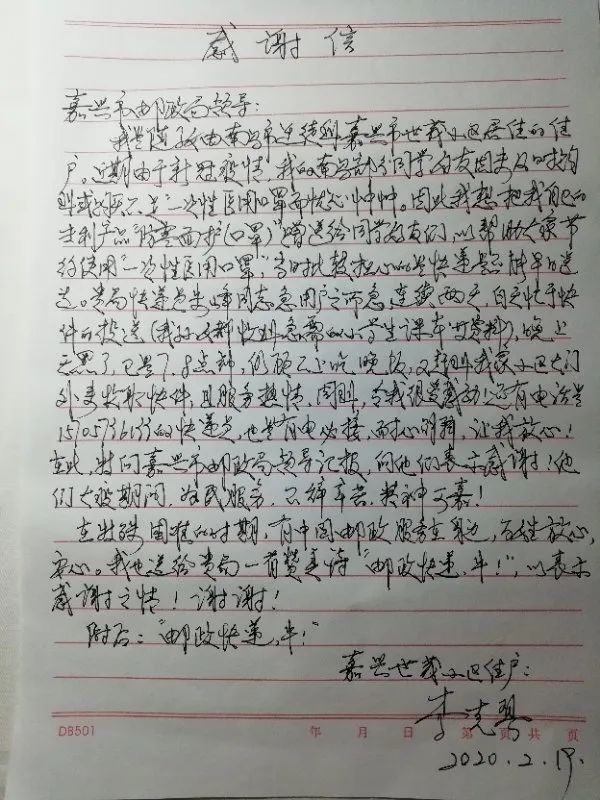 感谢信
嘉兴市邮政局领导：
我是随子女由南昌市迁徙到嘉兴市世茂小区居住的住
户。近期由于新冠疫情，我的南昌部分同学好友因未及时购
到或购不足“一次性医用口罩”而忧心忡忡。因此我想把我自己的
专利产品“防雾面护（口罩）”赠送给同学好友们，以帮助大家节
约使用“一次性医用口罩”，当时比较担心的是快递是否能早日送
达。贵局快递员朱峰同志急用户之所急，连续两天，白天忙于快
件的投送（我孙女都收到急需的小学生课本等资料），晚上
天黑了，已是7、8点钟，仍顾不上吃晚饭，又赶到我家小区大门
外来收取快件，且服务热情、周到，令我很受感动！还有电话是
的快递员，也是有电必接，耐心明释，让我放心！
在此，出向嘉兴市邮政局领导汇报，向他们表示感谢！他
们大疫期间，为民服务，不辞辛苦，精神可嘉！
在出现困难的时期，有中国邮政服务在身边，百姓放心，
安心。我也送给贵局一首赞美诗“邮政快递，牛！”，以表示
感谢之情！谢谢！
附后：“邮政快递，牛！”
嘉兴世茂小区住户：
李克
DB501 年 月 日 第 页 共 页
2020.2.19.